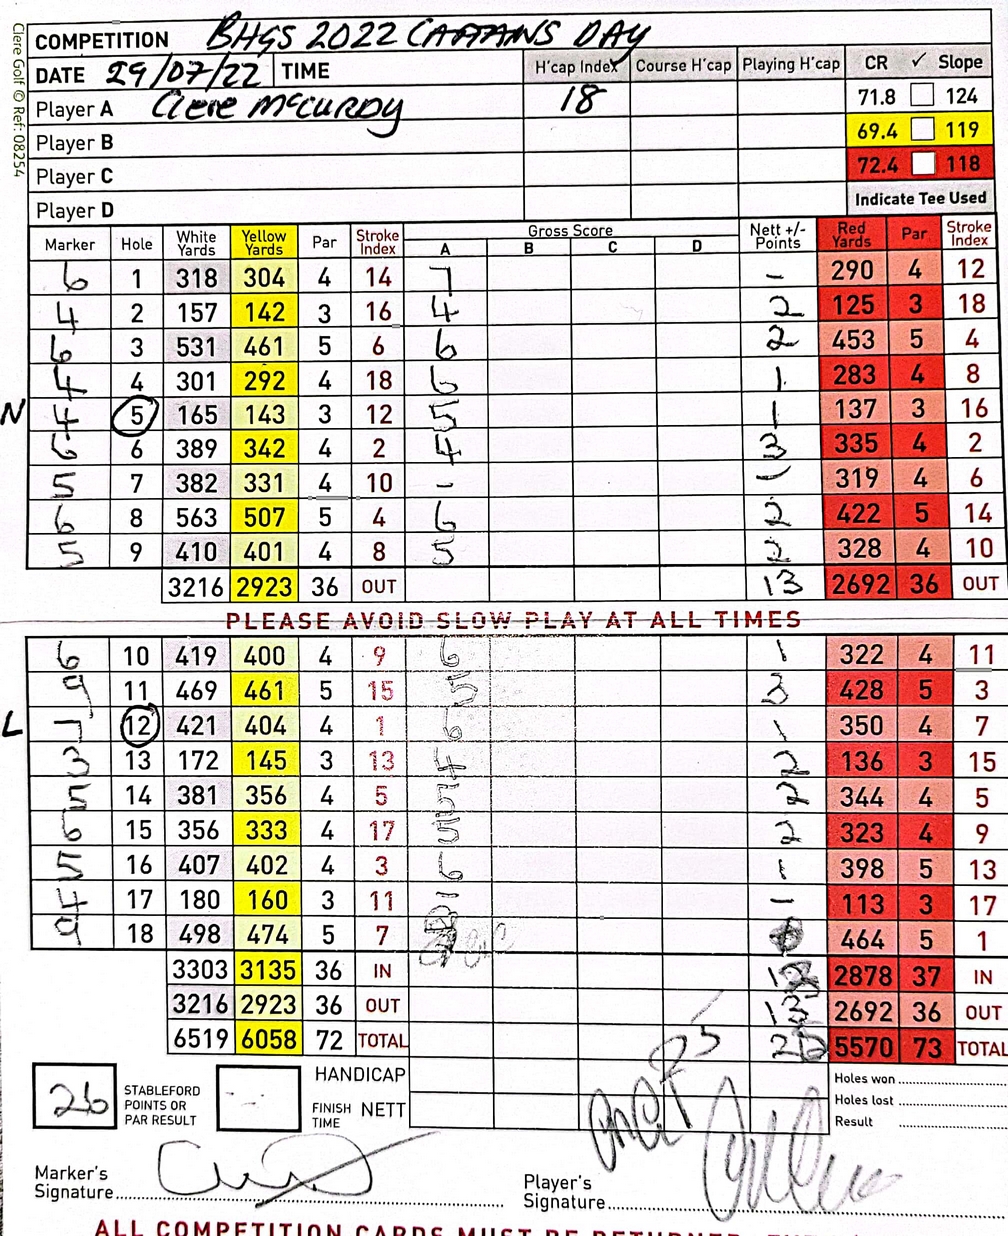 COMPETITION BHGS 2022 CAPTAINS DAY
DATE 29/07/22 TIME H'cap Index Course H'cap Playing H'cap CR ✓ Slope
Player A McCURDY 18 71.8 124
Player B 69.4 119
Player C 72.4 118
Player D Indicate Tee Used
Clere Golf © Ref: 08254
Marker Hole White Yards Yellow Yards Par Stroke Index Gross Score A B C D Nett +/- Points Red Yards Par Stroke Index
6 1 318 304 4 14 7 - 290 4 12
4 2 157 142 3 16 4 2 125 3 18
6 3 531 461 5 6 6 2 453 5 4
4 4 301 292 4 18 6 1 283 4 8
N 4 5 165 143 3 12 5 1 137 3 16
6 6 389 342 4 2 4 3 335 4 2
5 7 382 331 4 10 - - 319 4 6
6 8 563 507 5 4 6 2 422 5 14
5 9 410 401 4 8 5 2 328 4 10
3216 2923 36 OUT 13 2692 36 OUT
PLEASE AVOID SLOW PLAY AT ALL TIMES
6 10 419 400 4 9 6 1 322 4 11
9 11 469 461 5 15 5 3 428 5 3
L 7 12 421 404 4 1 6 1 350 4 7
3 13 172 145 3 13 4 2 136 3 15
5 14 381 356 4 5 5 2 344 4 5
6 15 356 333 4 17 5 2 323 4 9
5 16 407 402 4 3 6 1 398 5 13
4 17 180 160 3 11 - 113 3 17
9 18 498 474 5 7 464 5 1
3303 3135 36 IN 2878 37 IN
3216 2923 36 OUT 13 2692 36 OUT
6519 6058 72 TOTAL 5570 73 TOTAL
26 STABLEFORD POINTS OR PAR RESULT FINISH TIME
HANDICAP
NETT
Holes won
Holes lost
Result
Marker's Signature
Player's Signature